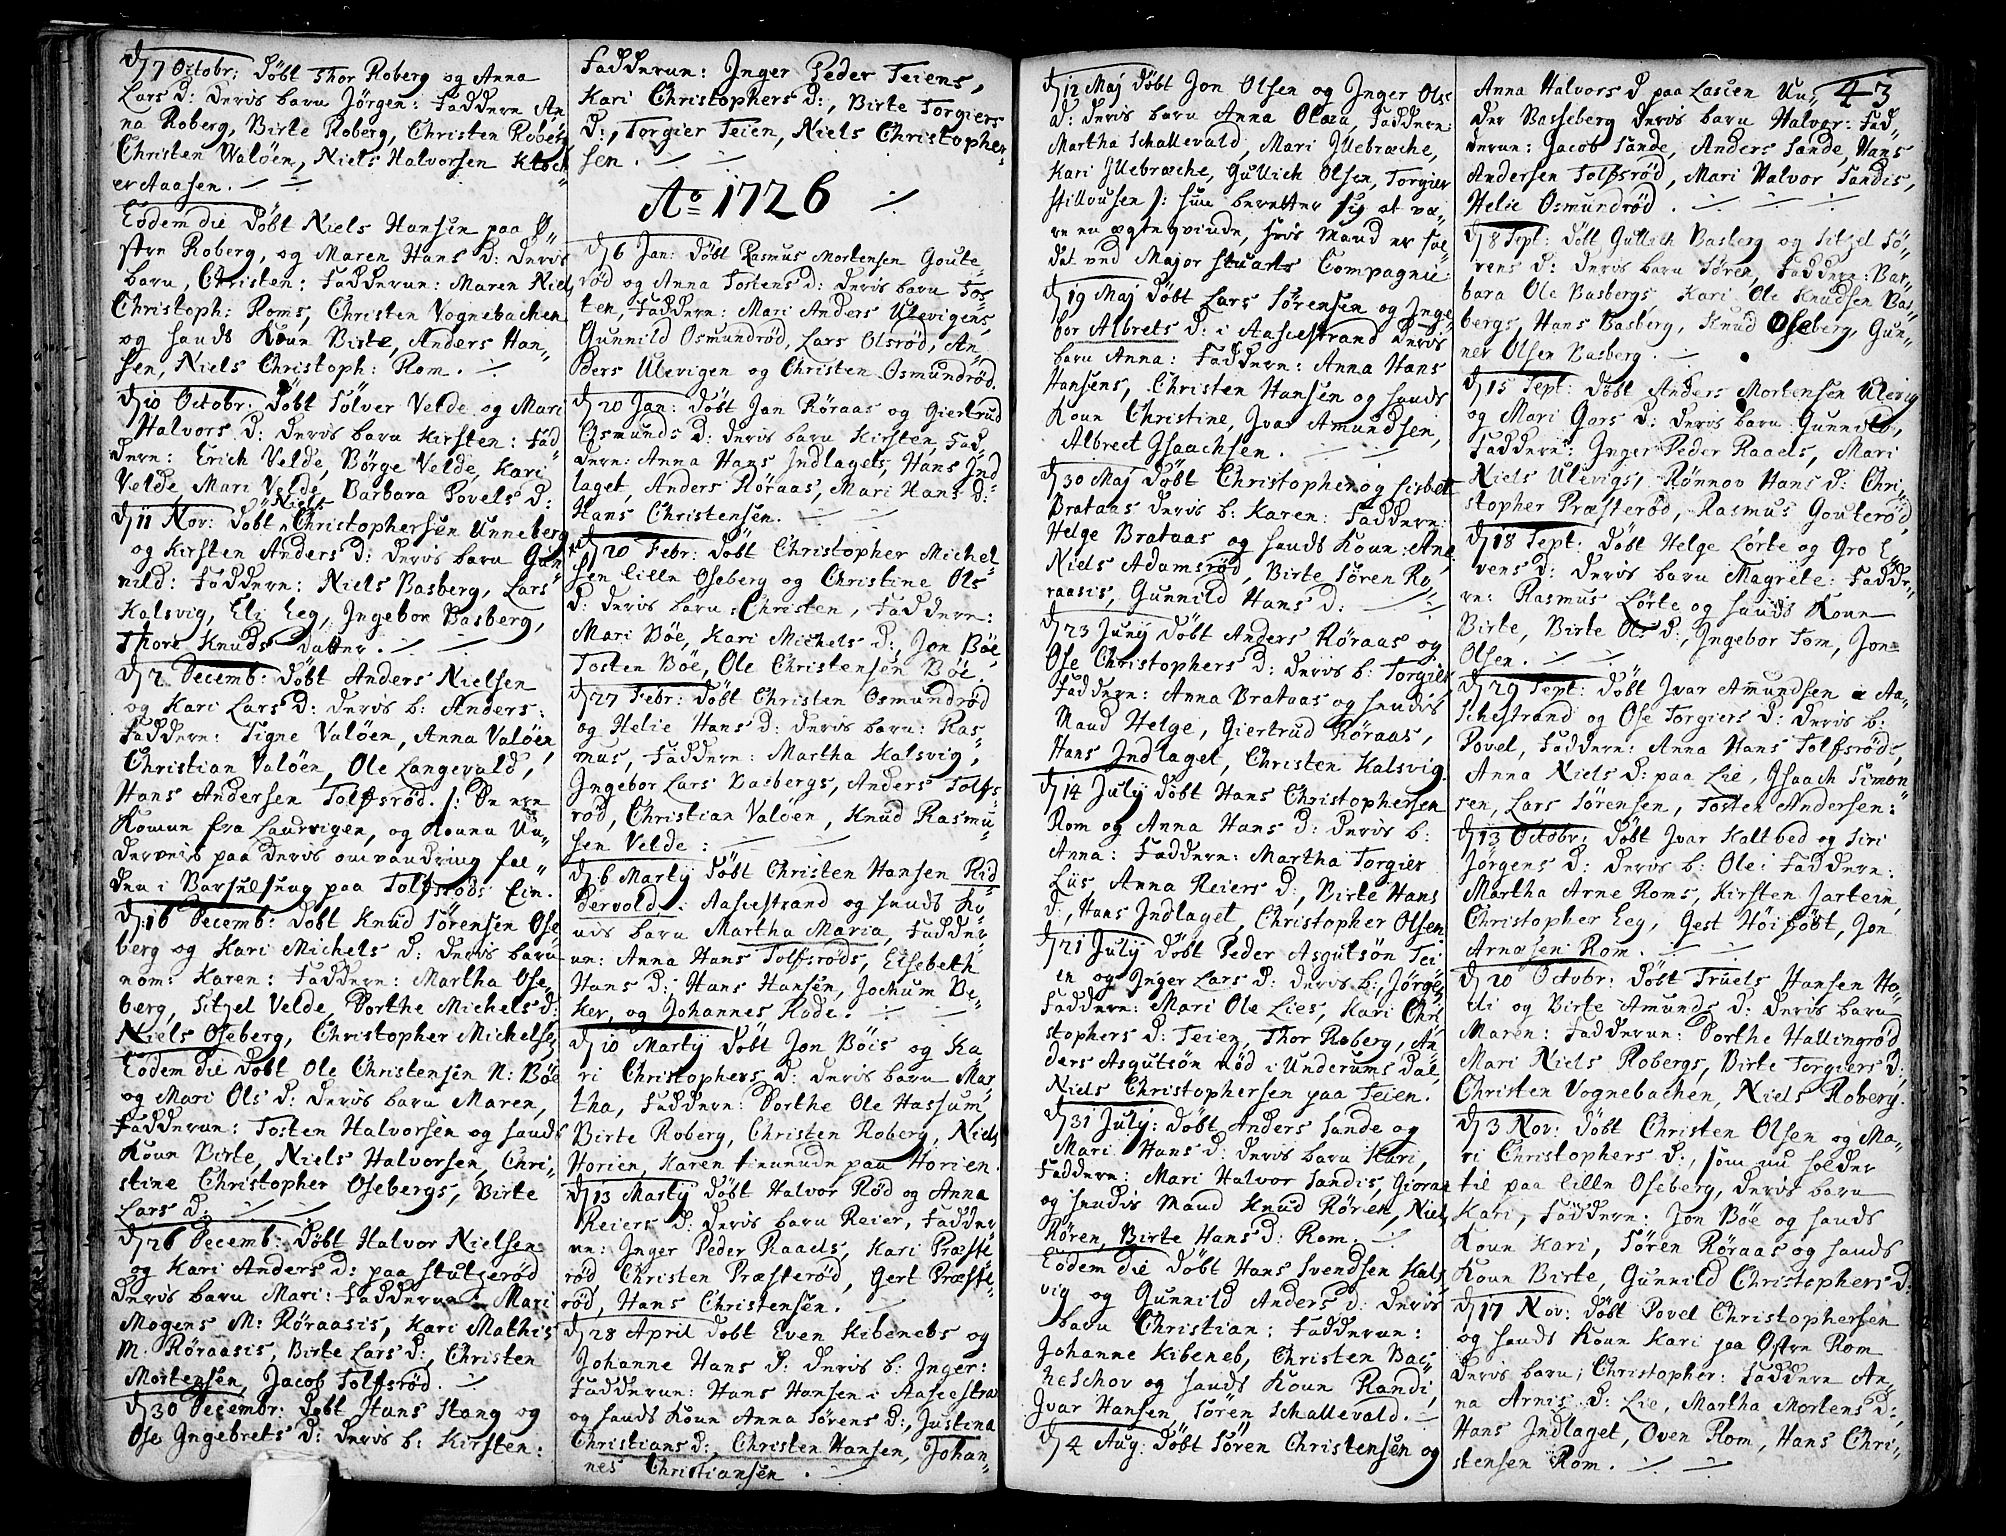 d 7 Octobr: Döbt Thor Roberg og Anna
Lars D: deris barn Jörgen: Faddere An
na Roberg, Birte Roberg, Christen Roberg
Christen Walöen, Niels Halvorsen Klock„
er Aaasen.
Eodem die Döbt Niels Hansen paa Ø„
stre Roberg, og Maren Hans D: deris
barn, Christen: Fadderne: Maren Niels
Christoph: Roms, Christen Vognebachen
og hands Kone Birte, Anders Han„
sen, Niels Christoph: Rom.
d 10 Octobr: Döbt Sölver Velde og Mari
Halvors D: deris barn Kirsten: Fad
dere: Erich Velde, Börge Velde, Kari
Velde Mari Velde, Barbara Povels D:
d 11 Nov: Döbt Niels Christophersen Unneberg
og Kirsten Anders D: deris barn Gun
nild: Faddere: Niels Basberg, Lars
Kalsvig, Eli Eeg, Ingebor Basberg,
Thore Knuds datter.
d 2 Decemb: Döbt Anders Nielsen
og Kari Lars D: deris b: Anders:
Faddere: Signe Valöen, Anna Valöen
Christian Valöen, Ole Langevald,
Hans Andersen Tolfsröd. /: De ere
Komne fra Laurvigen, og Konen Un„
derveis paa deris omvandring fal„
den i Barselseng paa Tolfsröds Eie.
d 16 Decemb: Döbt Knud Sörensen Ose
berg og Kari Michels D: deris barn
nom: Karen: Faddere: Martha Ose„
berg, Sitzel Velde, Dorthe Michels D:
Niels Oseberg, Christopher Michelsen
Eodem die Döbt Ole Christensen N: Böe
og Mari Ols D: deris barn Maren,
Fadderne: Tosten Halvorsen og hands
Kone Birte, Niels Halvorsen, Chri„
stine Christopher Osebergs, Birte
Lars D.
d 26 Decemb: Döbt Halvor Nielsen
og Kari Anders D: paa Stutzeröd
deris barn Mari: Fadderne Mari
Mogens M: Röraasis, Kari Mathis
M. Röraasis, Birte Lars D:, Christen
Mortensen, Jacob Tolfsröd.
d 30 Decembr: Döbt Hans Stang og
Ose Ingebrets D: deris b: Kirsten:
Fadderne: Inger Peder Teiens,
Kari Christophers D:, Birte Torgiers
D:, Torgier Teien, Niels Christopher„
sen.
Ao 1726
d 6 Jan: Döbt Rasmus Mortensen Goute„
röd og Anna Tostens D: deris barn Tos„
ten, Faddere: Mari Anders Ulevigens,
Gunnild Osmundröd, Lars Olsröd, An„
ders Ulevigen og Christen Osmundröd.
d 20 Jan: Döbt Jan Röraas og Giertrud
Osmunds D: deris barn Kirsten, Fad„
dere: Anna Hans Indlagets, Hans Ind„
laget, Anders Röraas, Mari Hans D:
Hans Christensen.
d 20 Febr: Döbt Christopher Michel
sen lille Oseberg og Christine Ols
D: deris barn: Christen, Faddere:
Mari Böe, Kari Michels D:, Jon Böe,
Tosten Böe, Ole Christensen Böe.
d 27 Febr: Döbt Christen Osmundröd
og Helie Hans D: deris barn: Ras„
mus, Faddere: Martha Kalsvig,
Ingebor Lars Basbergs, Anders Tolfs„
röd, Christian Valöen, Knud Rasmu„
sen Velde:
d 6 Martij Döbt Christen Hansen Rid
dervold i Aasgestrand og hands Ko„
nis barn Martha Maria, Fadder„
ne: Anna Hans Tolfsröds, Elsebeth
Hans D:, Hans Hansen, Jochum Be„
ker, og Johannes Rode.
d 10 Martij Döbt Jon Böis og Ka
ri Christophers D: deris barn Mar
tha, Faddere: Dorthe Ole Hassum,
Birte Roberg, Christen Roberg, Niels
Horien, Karen tienende paa Horien.
d 13 Martij Döbt Halvor Röd og Anna
Reiers D: deris barn Reier, Fadder
ne: Inger Peder Raaels, Kari Præste
röd Christen Præsteröd, Gert Præste„
röd, Hans Christensen.
d 28 April Döbt Even Kibenebs og
Johanne Hans D: deris b: Inger:
Fadderne: Hans Hansen i Aasgestran
og hands Kone Anna Sörens D:, Justina
Christians D:, Christen Hansen, Johan„
nes Christiansen.
d 12 Maj Döbt Jon Olsen og Inger Ols
D: deris barn Anna Olæa, Faddere
Martha Schallevald, Mari Illebræche,
Kari Illebræche, Gullich Olsen, Torgier
Stillousen /: hun beretter sig at væ„
re en ægteqvinde, hvis Mand er Sol„
dat ved Major Stuarts Compagnie
d 19 Maj Döbt Lars Sörensen og Inge
bor Albrets D: i Aasgestrand deris
barn Anna: Faddere: Anna Hans
Hansens, Christen Hansen og hands
Kone Christine, Ivar Amundsen,
Albrect Isaachsen.
d 30 Maj Döbt Christopher og Lisbet
Brataas deris b: Karen: Faddere:
Helge Brataas og hands Kone: Ane
Niels Adamsröd, Birte Sören Rö„
raasis, Gunnild Hans D:
d 23 Junij Döbt Anders Röraas og
Ose Christophers D: deris b: Torgier
Faddere: Anna Brataas og hendis
Mand Helge, Giertrud Röraas,
Hans Indlaget, Christen Kalsvig.
d 14 July Döbt Hans Christophersen
Rom og Anna Hans D: deris b:
Anna: Faddere: Martha Torgier
Liis, Anna Reiers D:, Birte Hans
D:, Hans Indlaget, Christopher Olsen
d 21 July Döbt Peder Asgutsön Tei
en og Inger Lars D: deris b: Jörgen
Faddere: Mari Ole Lies, Kari Chri
stophers D: Teien, Thor Roberg, An
ders Asgutsön Röd i Undrums Dal,
Niels Christophersen paa Teien.
d 31 July: Döbt Anders Sande og
Mari Hans D: deris barn Kari,
Faddere: Mari Halvor Sandis, Gioran
og hendis Mand Knud Rören, Niels
Rören, Birte Hans D: Rom.
Eodem die Döbt Hans Svendsen Kals
vig og Gunnild Anders D: deris
barn Christian: Fadderne:
Johanne Kibeneb, Christen Bac„
heschov og hands Kone Randi,
Ivar Hansen, Sören Schallevald.
d 4 Aug: Döbt Sören Christensen og
43
Anna Halvors D paa Lasken Un„
der Basseberg deris barn Halvor: Fad„
derne: Jacob Sande, Anders Sande, Hans
Andersen Tolfsröd, Mari Halvor Sandis,
Helie Osmundröd.
d 8 Sept: Döbt Gullich Basberg og Sitzel Sö„
rens D: deris barn Sören, Faddere: Bar„
bara Ole Basbergs, Kari Ole Knudsen Bas„
bergs, Hans Basberg, Knud Oseberg, Gun„
ner Olsen Basberg.
d 15 Sept: Döbt Anders Mortensen Ulevig
og Mari Gors D: deris barn Gunnild,
Faddere: Inger Peder Raaels, Mari
Niels Ulevigs, Rönnov Hans D: Chri„
stopher Præsteröd, Rasmus Gouteröd,
d 18 Sept: Döbt Helge Lörte og Gro E„
vens D: deris barn Magrete: Fadde„
re: Rasmus Lörte og hands Kone
Birte, Birte Ols D:, Ingebor Tom, Jon
Olsen.
d 29 Sept: Döbt Ivar Amundsen i Aa„
schestrand og Ose Torgiers D: deris b:
Povel, Faddere: Anna Hans Tolfsröds,
Anna Niels D: paa Lie, Isaach Simon„
sen, Lars Sörensen, Tosten Andersen:
d 13 Octobr: Döbt Ivar Kaltbed og Siri
Jörgens D: deris b: Ole: Faddere:
Martha Arne Roms, Kirsten Jartein,
Christopher Eeg, Gest Höisöbt, Jon
Arnæsen Rom.
d 20 Octobr: Döbt Truels Hansen Ho„
di og Birte Amunds D: deris barn
Maren: Fadderne: Dorthe Hallingröd
Mari Niels Robergs, Birte Torgiers D:
Christen Vognebachen, Niels Roberg.
d 3 Nov: Döbt Christen Olsen og Ma„
ri Christophers D:, som nu holder
til paa lille Oseberg, deris barn
Kari, Faddere: Jon Böe og hands
Kone Kari, Sören Röraas og hands
Kone Birte, Gunnild Christophers D:
d 17 Nov: Döbt Povel Christophersen
og hands Kone Kari paa Østre Rom
deris barn, Christopher: Faddere An„
na Arnis D: Lie, Martha Mortens D:,
Hans Indlaget, Oven Rom, Hans Chri„
stensen Rom.